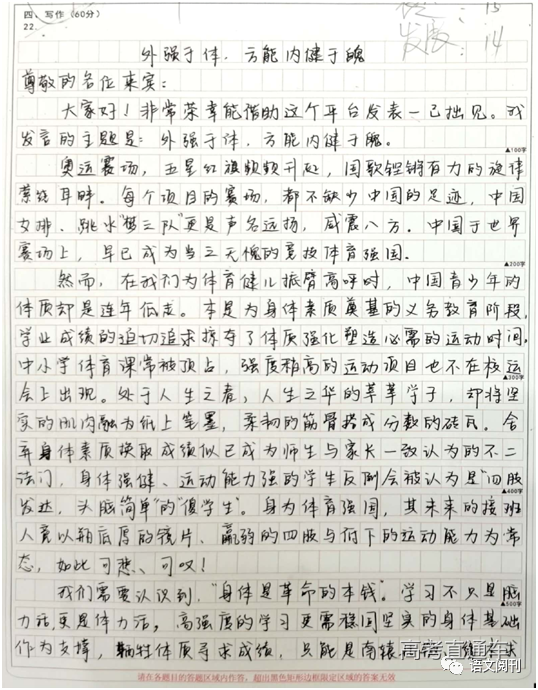 四、写作(60分)
22.
15
发展: 14
外强于体,方能内健于魄
尊敬的各位来宾:
大家好!非常荣幸能借助这个平台发表一己拙见。我
发言的主题是:外强于体,方能内健于魄。
▲100字
奥运赛场,五星红旗频频升起,国歌铿锵有力的旋律
萦绕耳畔。每个项目的赛场,都不缺少中国的足迹,中国
女排、跳水"梦之队"更是声名远扬,威震八方。中国于世界
赛场上,早已成为当之无愧的竞技体育强国。
▲200字
然而,在我们为体育健儿振臂高呼时,中国青少年的
体质却是连年低走。本是为身体素质奠基的义务教育阶段,
学业成绩的迫切追求掠夺了体质强化塑造必需的运动时间,
中小学体育课常被顶占,强度稍高的运动项目也不在校运
▲300字
会上出现。处于人生之春,人生之华的莘莘学子,却将坚
实的肌肉融为纸上笔墨,柔韧的筋骨搭成分数的砖瓦。舍
弃身体素质换取成绩似已成为师生与家长一致认为的不二
法门,身体强健、运动能力强的学生反倒会被认为是"四肢
▲400字
发达,头脑简单"的"傻学生"。身为体育强国,其未来的接班
人竟以瓶底厚的镜片、羸弱的四肢与低下的运动能力为常
态,如此可悲、可叹!
我们需要认识到,"身体是革命的本钱"。学习不只是脑
▲500字
力活,更是体力活,高强度的学习更需稳固坚实的身体基础
作为支撑,牺牲体质寻求成绩,只能是南辕
请在各题目的答题区域内作答,超出黑色矩形边框限定区域的答案无效
高考直通车
语文阅刊